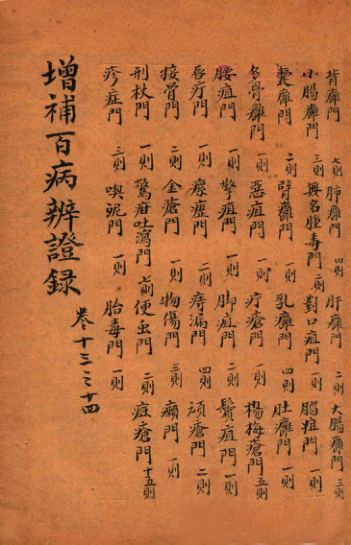 背癰門 七則 肺癰門 四則 肝癰門 二則 大腸癰門 三則
小腸癰門 三則 無名腫毒門 二則 對口疽門 一則 腦疽門 一則
囊癰門 二則 臂癰門 一則 乳癰門 四則 肚癰門 一則
多骨癰門 一則 惡疽門 一則 疔瘡門 一則 楊梅瘡門 五則
腰疽門 一則 擎疽門 一則 脚疽門 二則 鬢疽門 一則
唇疔門 一則 瘰癧門 二則 痔漏門 四則 頑瘡門 二則
接骨門 二則 金瘡門 一則 物傷門 三則 癩門 一則
刑杖門 一則 驚疳吐瀉門 七則 便虫門 二則 痘瘡門 十五則
疹症門 三則 喫泥門 一則 胎毒門 一則
增補百病辨證錄 卷十三之十四